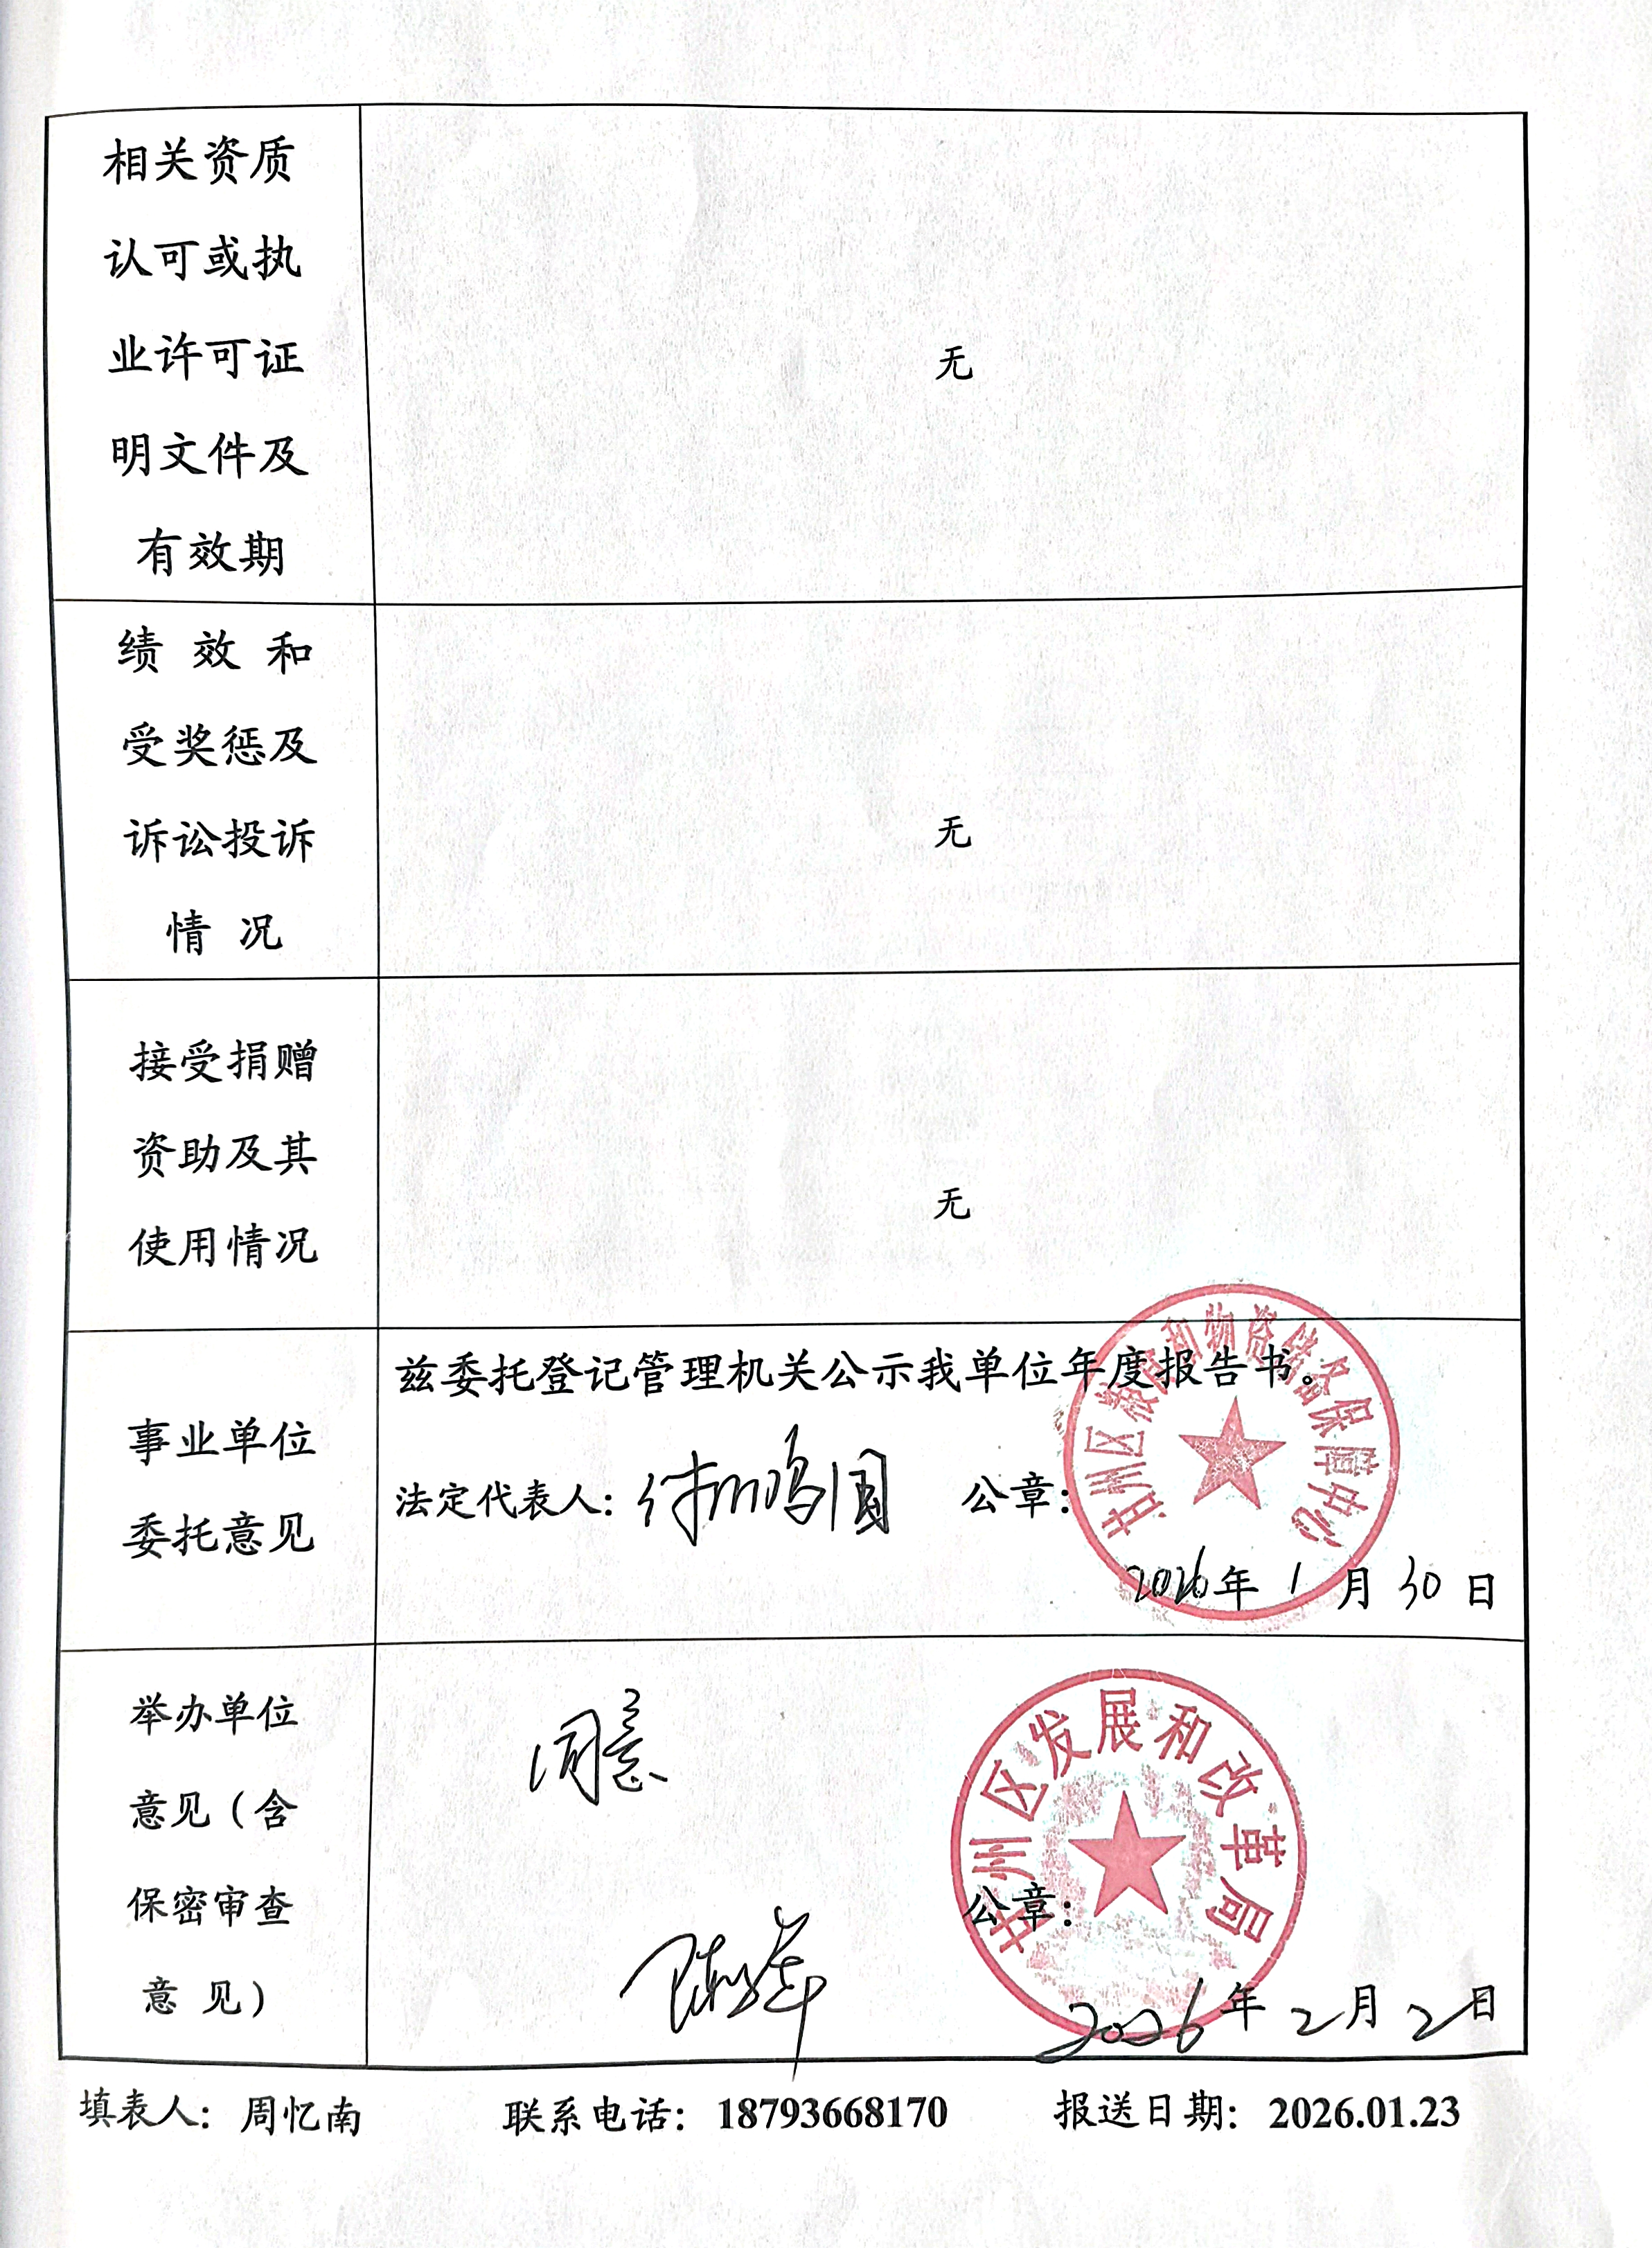 相关资质
认可或执
业许可证
明文件及
有效期
无
绩 效 和
受奖惩及
诉讼投诉
情 况
无
接受捐赠
资助及其
使用情况
无
事业单位
委托意见
兹委托登记管理机关公示我单位年度报告书。
法定代表人： 公章：
甘州区粮食和物资储备保障中心
2026年 1 月 30 日
举办单位
意见（含
保密审查
意 见）
同意
甘州区发展和改革局
公章：
2026年 2月 2日
填表人：周忆南 联系电话：18793668170 报送日期：2026.01.23